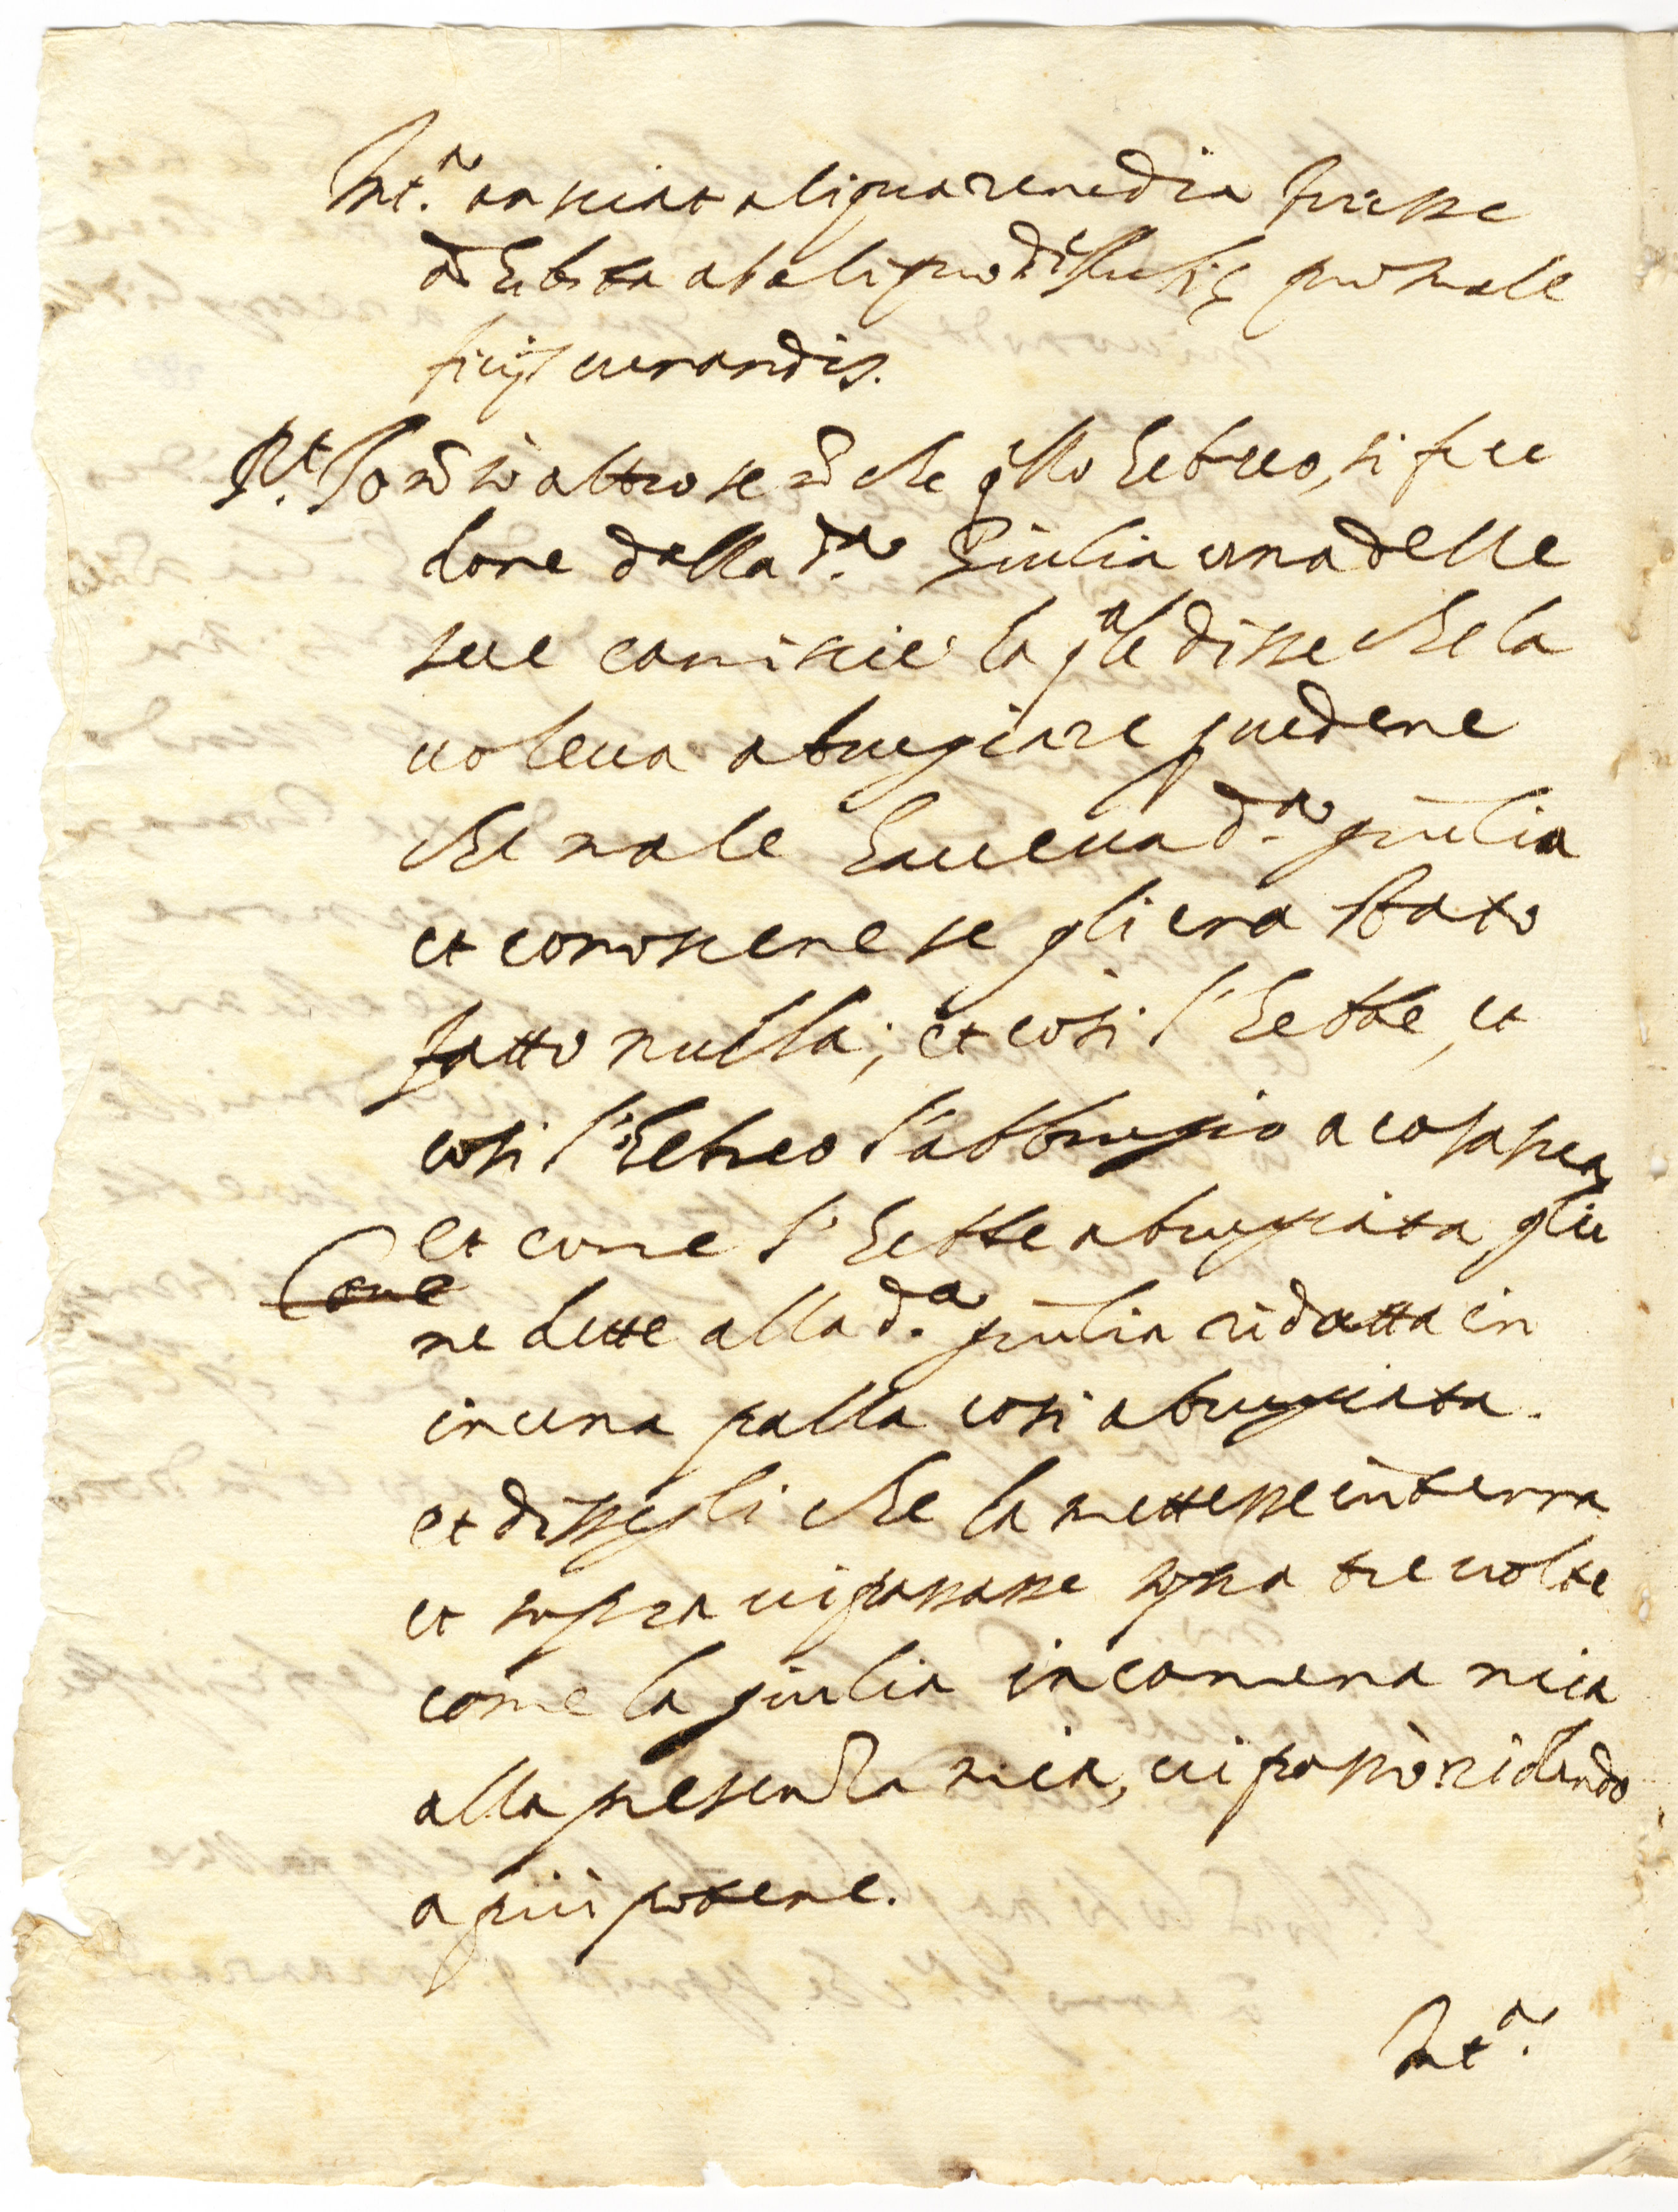 Int.a an sciat aliqua remedia fuisse
adhibita ab aliquo d.i male
ficijs curandis.
R.t Io nõ sò altro se nõ che q.llo hebreo, si fece
dare dalla d.a Giulia una delle
sue camiscie la q.ale disse che la
uoleua abrugiare p uedere
che male haueua d.a giulia
et conoscere se gli era stato
fatto nulla; et cosi l'hebbe, et
cosi l'hebreo l'abbrugio a cosa sua
et come l'hebbe abrugiata glie
Come
ne dette alla d.a giulia ridotta in
in una palla cosi abrugiata.
et dissegli che la mettesse in terra
et sopra ui passasse sopra tre uolte
come la giulia in camera mia
alla presenza mia, ui passò ridendo
a più potere.
Int.a